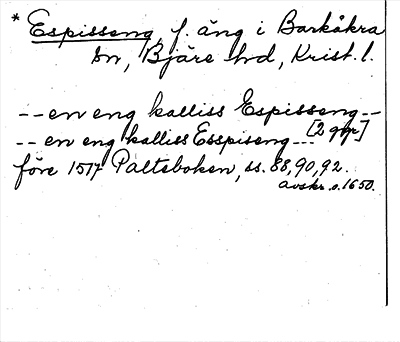 * Espisseng, f. äng i Barkåkra
sn, Bjäre hd, Krist. l.
-- en eng kalliss Espisseng --
-- en eng kalliss Esspiseng --- [2 ggr]
före 1517 Palteboken, ss. 88, 90, 92.
avskr. o. 1650.